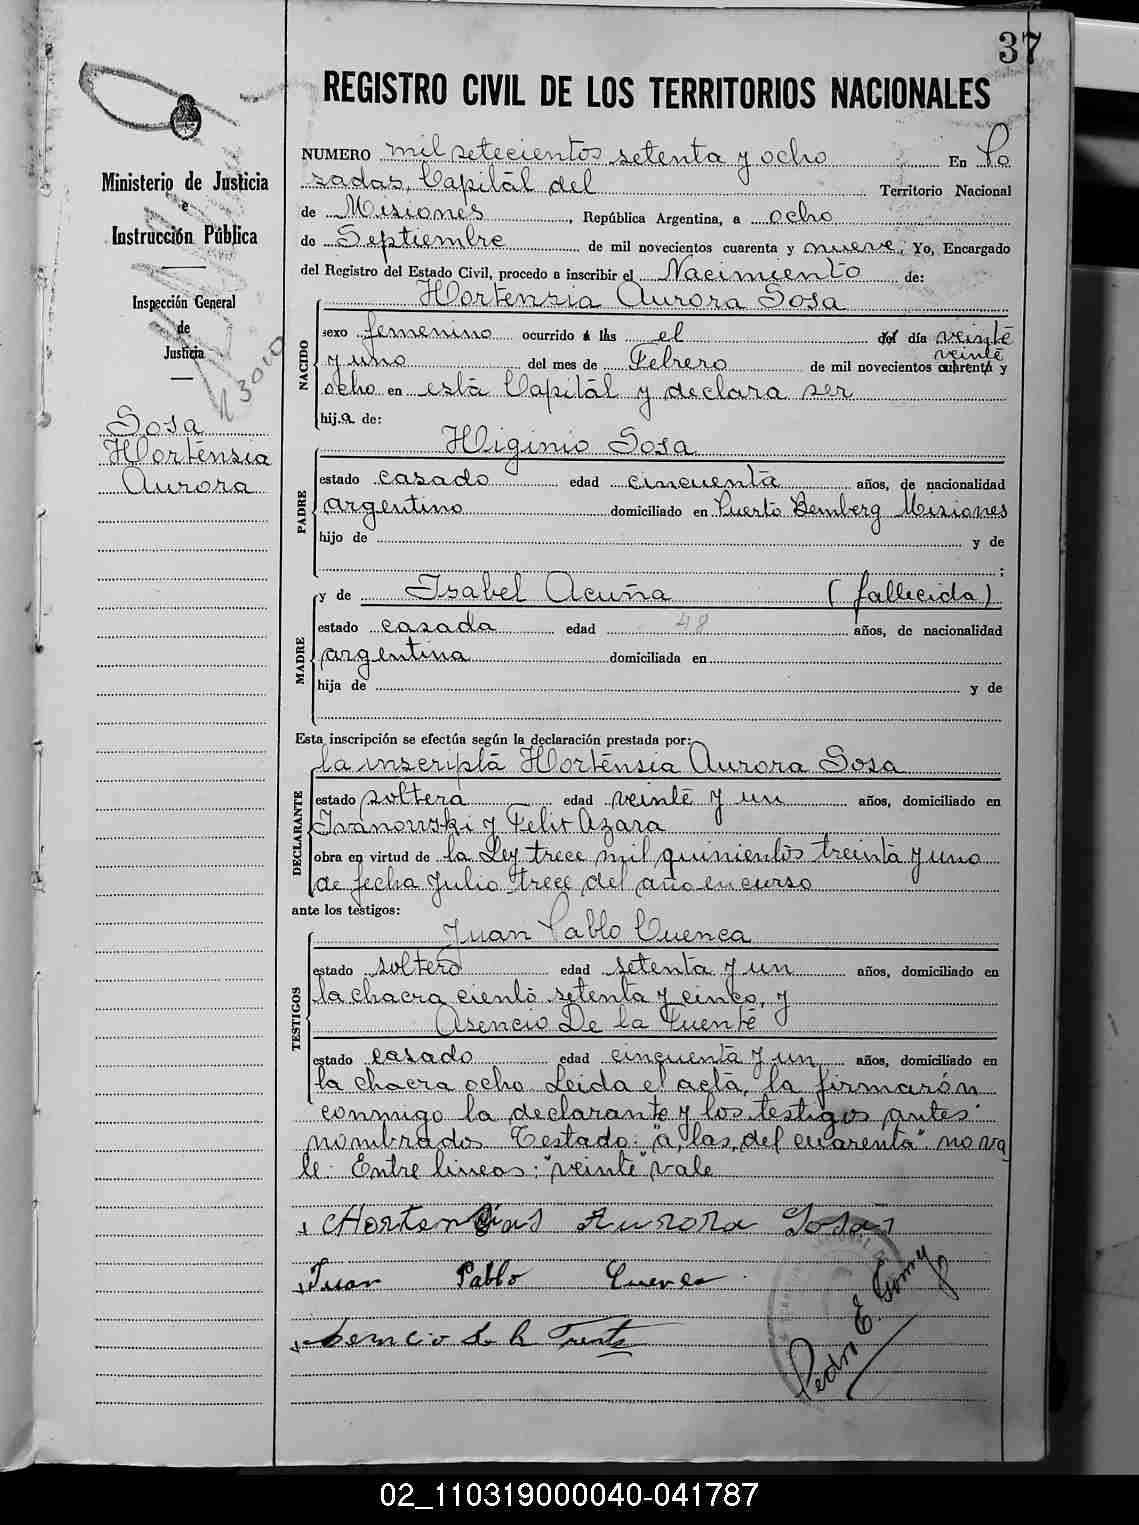 37
REGISTRO CIVIL DE LOS TERRITORIOS NACIONALES
Ministerio de Justicia
e
Instrucción Pública
Inspección General
de
Justicia
Sosa
Hortensia
Aurora
NUMERO mil setecientos setenta y ocho En Po
sadas, Capital del Territorio Nacional
de Misiones, República Argentina, a ocho
de Septiembre de mil novecientos cuarenta y nueve; Yo, Encargado
del Registro del Estado Civil, procedo a inscribir el Nacimiento de:
Hortensia Aurora Sosa
NACIDO
sexo femenino ocurrido a las el del día veinte
y uno del mes de Febrero de mil novecientos cuarenta y
veinte
ocho en esta Capital y declara ser
hija de:
Higinio Sosa
PADRE
estado casado edad cincuenta años, de nacionalidad
argentino domiciliado en Puerto Bemberg Misiones
hijo de y de
;
y de Isabel Acuña (fallecida)
MADRE
estado casada edad 48 años, de nacionalidad
argentina domiciliada en
hija de y de
Esta inscripción se efectúa según la declaración prestada por:
la inscripta Hortensia Aurora Sosa
DECLARANTE
estado soltera edad veinte y un años, domiciliado en
Ivanowski y Felix Azara
obra en virtud de la Ley trece mil quinientos treinta y uno
de fecha Julio trece del año en curso
ante los testigos:
Juan Pablo Cuenca
TESTIGOS
estado soltero edad setenta y un años, domiciliado en
la chacra ciento setenta y cinco, y
Asencio De la Fuente
estado casado edad cincuenta y un años, domiciliado en
la chacra ocho. Leida el acta, la firmarón
conmigo la declarante y los testigos antes
nombrados. Testado: "a, las, del cuarenta" no va
le. Entre lineas: "veinte" vale
Hortensias Aurora Sosas
Juan Pablo Cuenca
Asencio de la Fuente
Pedro E.
02_110319000040-041787